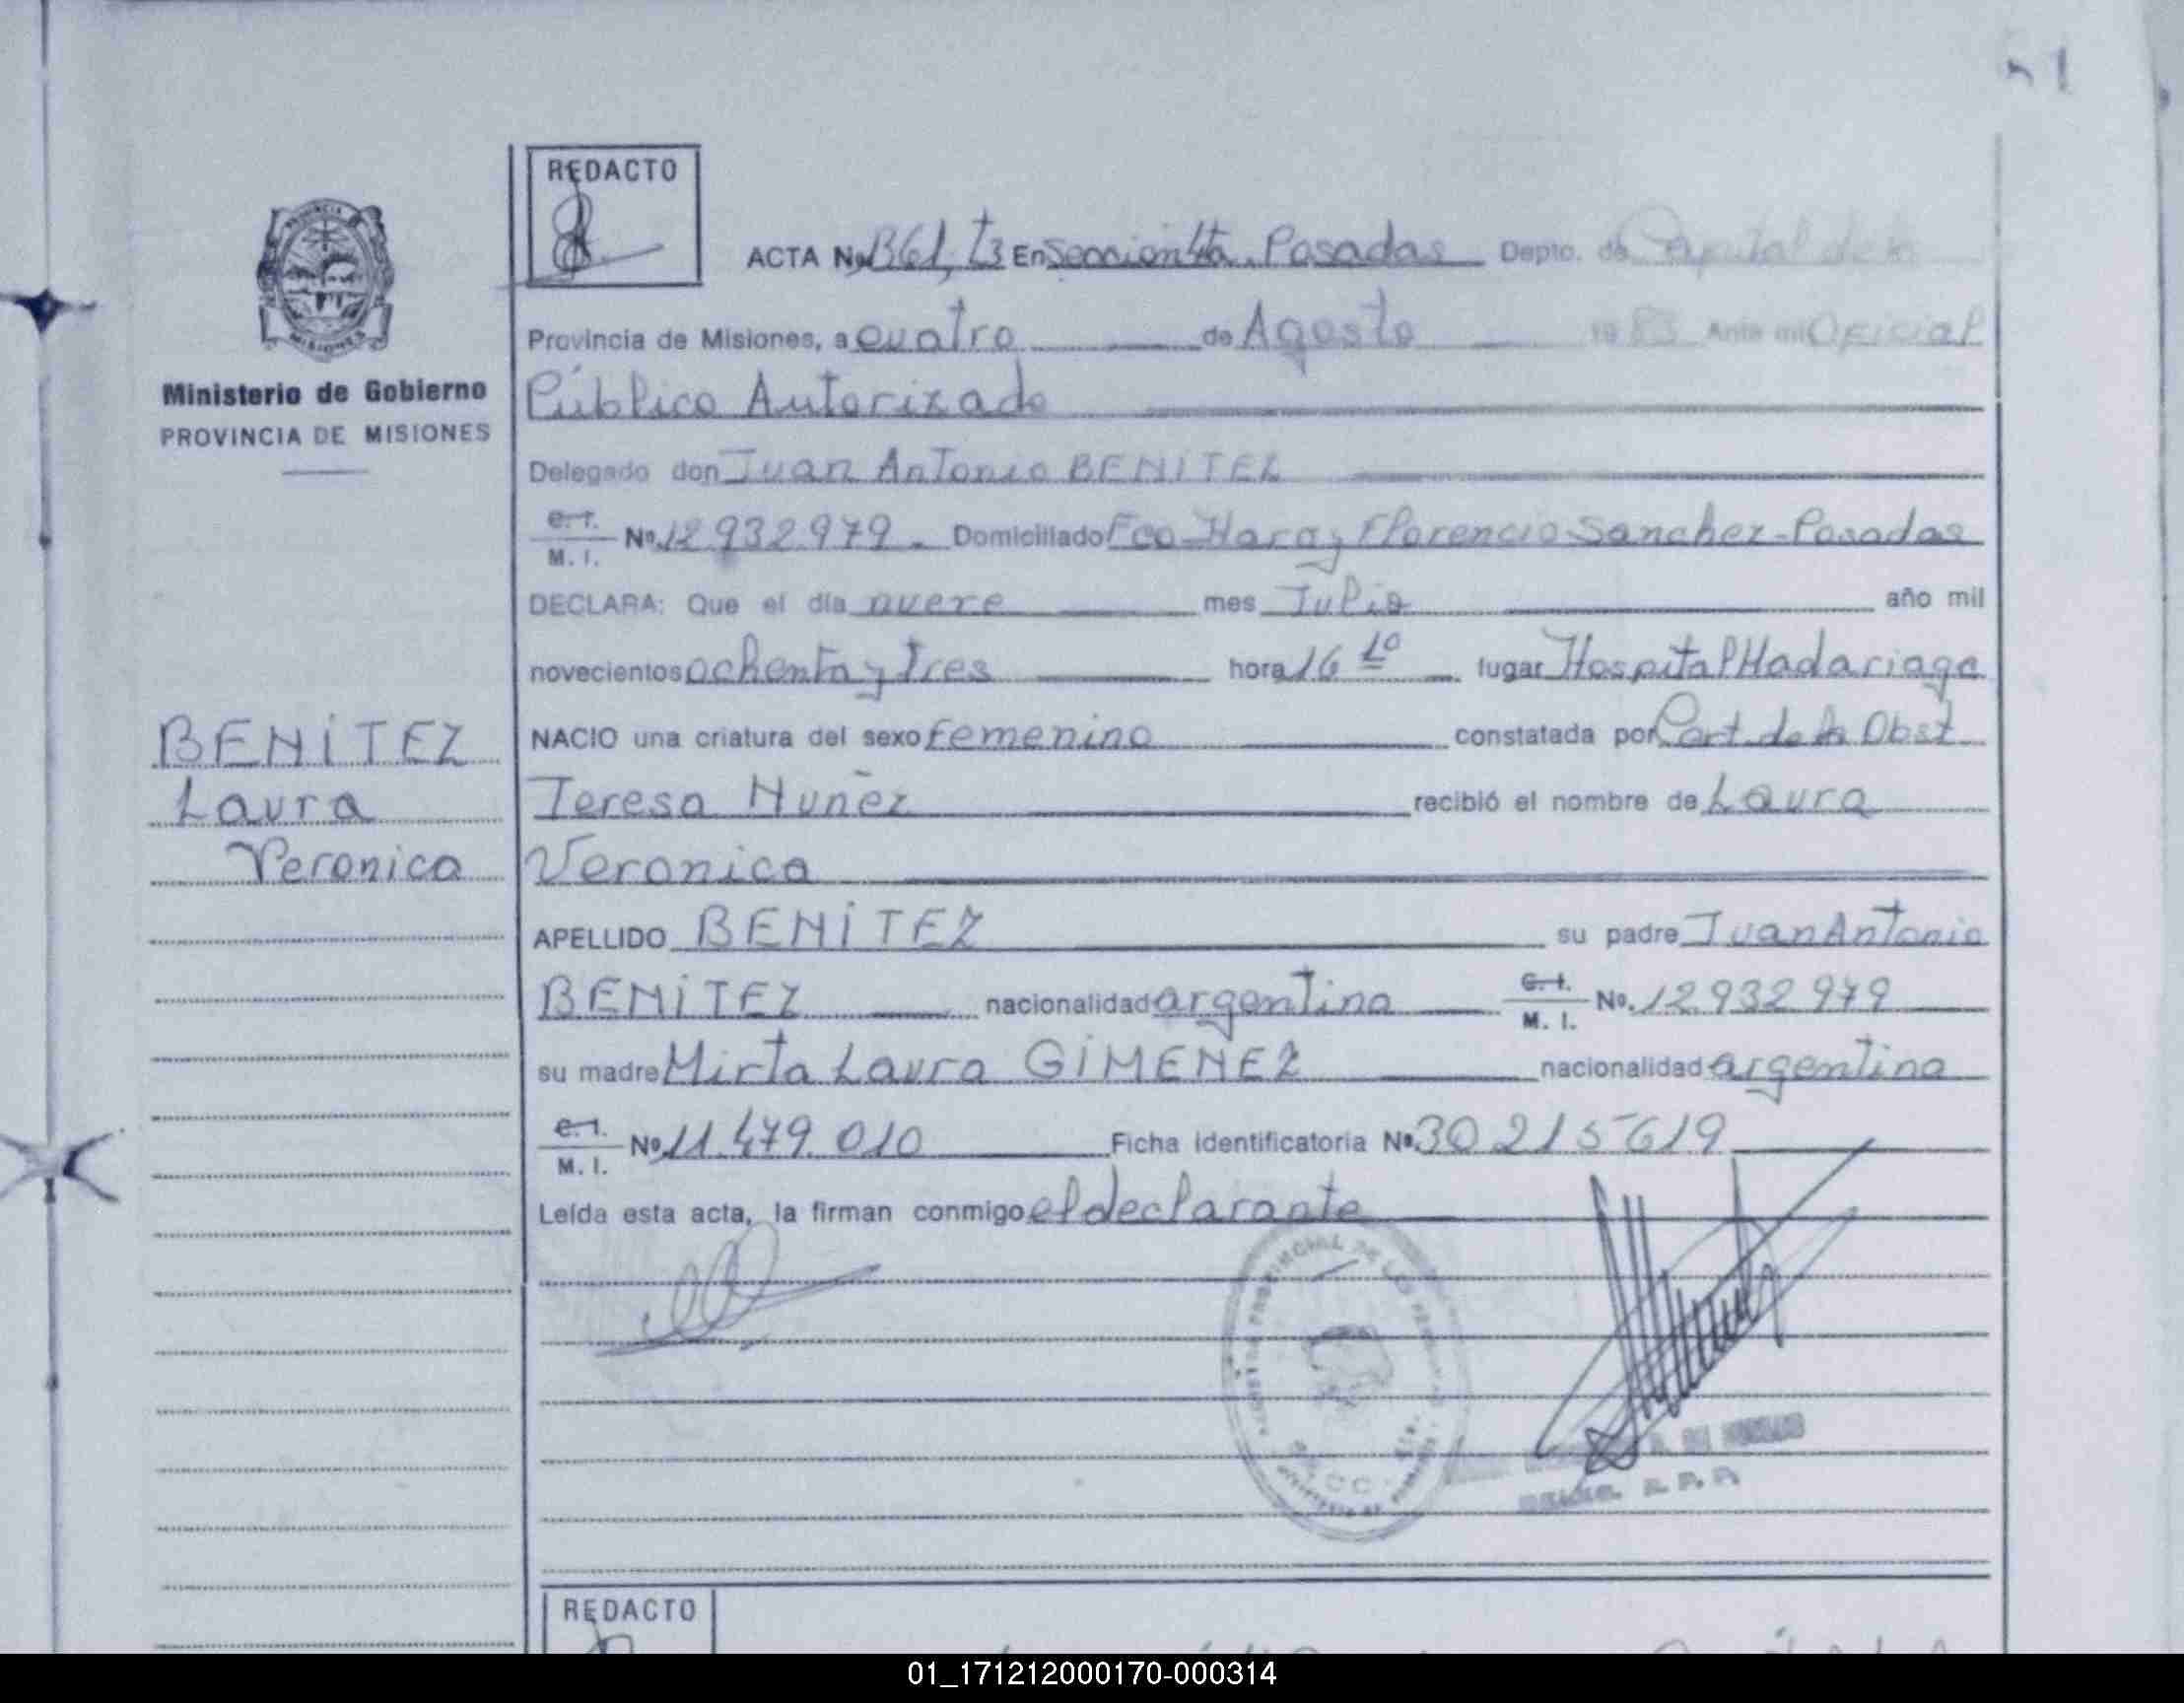 REDACTO
ACTA Nº 1361, t3 En Sección 4ta. Posadas Depto. de Capital de la
Provincia de Misiones, a cuatro de Agosto 19 83 Ante mi Oficial
Público Autorizado
Delegado don Juan Antonio BENITEZ
C. I.
M. I. Nº 12 932 979. Domiciliado Fco Haray Florencio Sanchez - Posadas
DECLARA: Que el día nueve mes Julio año mil
novecientos ochenta y tres hora 16 10 lugar Hospital Madariaga
NACIO una criatura del sexo femenino constatada por Cert. de la Obst
Teresa Nuñez recibió el nombre de Laura
Veronica
APELLIDO BENITEZ su padre Juan Antonio
BENITEZ nacionalidad argentina C. I.
M. I. Nº. 12 932 979
su madre Mirta Laura GIMENEZ nacionalidad argentina
C. I.
M. I. Nº 11.479.010 Ficha identificatoria Nº 30 215 619
Leída esta acta, la firman conmigo el declarante
Ministerio de Gobierno
PROVINCIA DE MISIONES
BENITEZ
Laura
Veronica
REDACTO
01_171212000170-000314